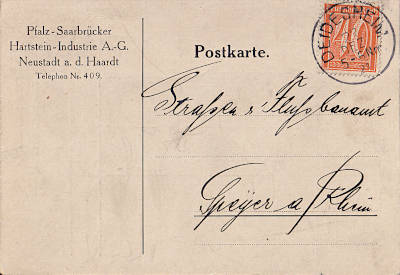 Pfalz-Saarbrücker
Hartstein-Industrie A.-G.
Neustadt a. d. Haardt
Telephon Nr. 409.
Postkarte.
40
Straßen u Flußbauamt
Speyer a/Rhein